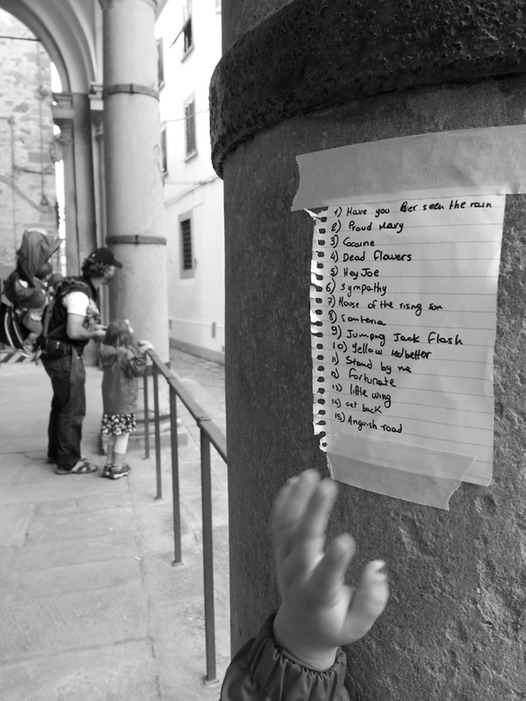 1) Have you Ever seen the rain
2) Proud Mary
3) Cocaine
4) Dead flowers
5) Hey Joe
6) Sympathy
7) House of the rising son
8) Santeria
9) Jumping Jack Flash
10) Yellow ledbetter
11) Stand by me
12) Fortunate
13) little wing
14) Get back
15) Anguish road